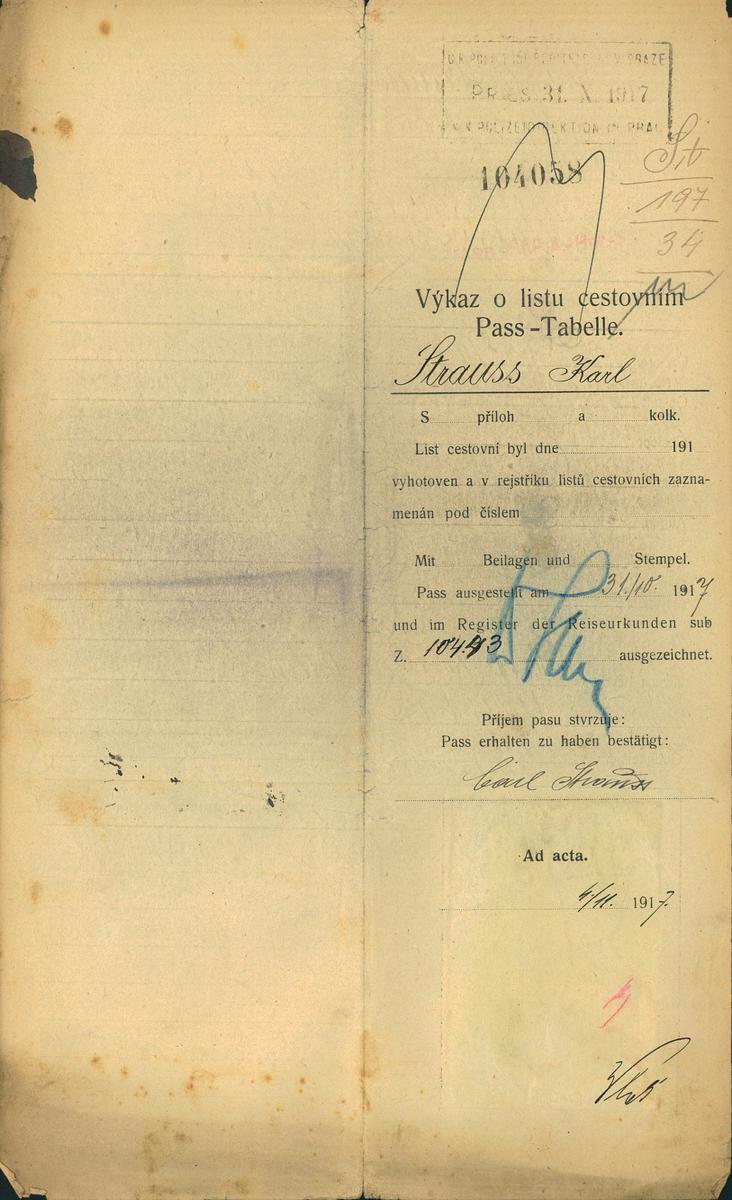 PRAES 31. X. 1917
K.K. POLIZEIDIREKTION IN PRAG
104058
Sit
197
34
Výkaz o listu cestovním
Pass-Tabelle.
Strauss Karl
S příloh a kolk.
List cestovní byl dne 191
vyhotoven a v rejstříku listů cestovních zazna-
menán pod číslem
Mit Beilagen und Stempel.
Pass ausgestellt am 31/10. 1917
und im Register der Reiseurkunden sub
Z. ausgezeichnet.
Příjem pasu stvrzuje:
Pass erhalten zu haben bestätigt:
Carl Strauss
Ad acta.
4/11. 1917.